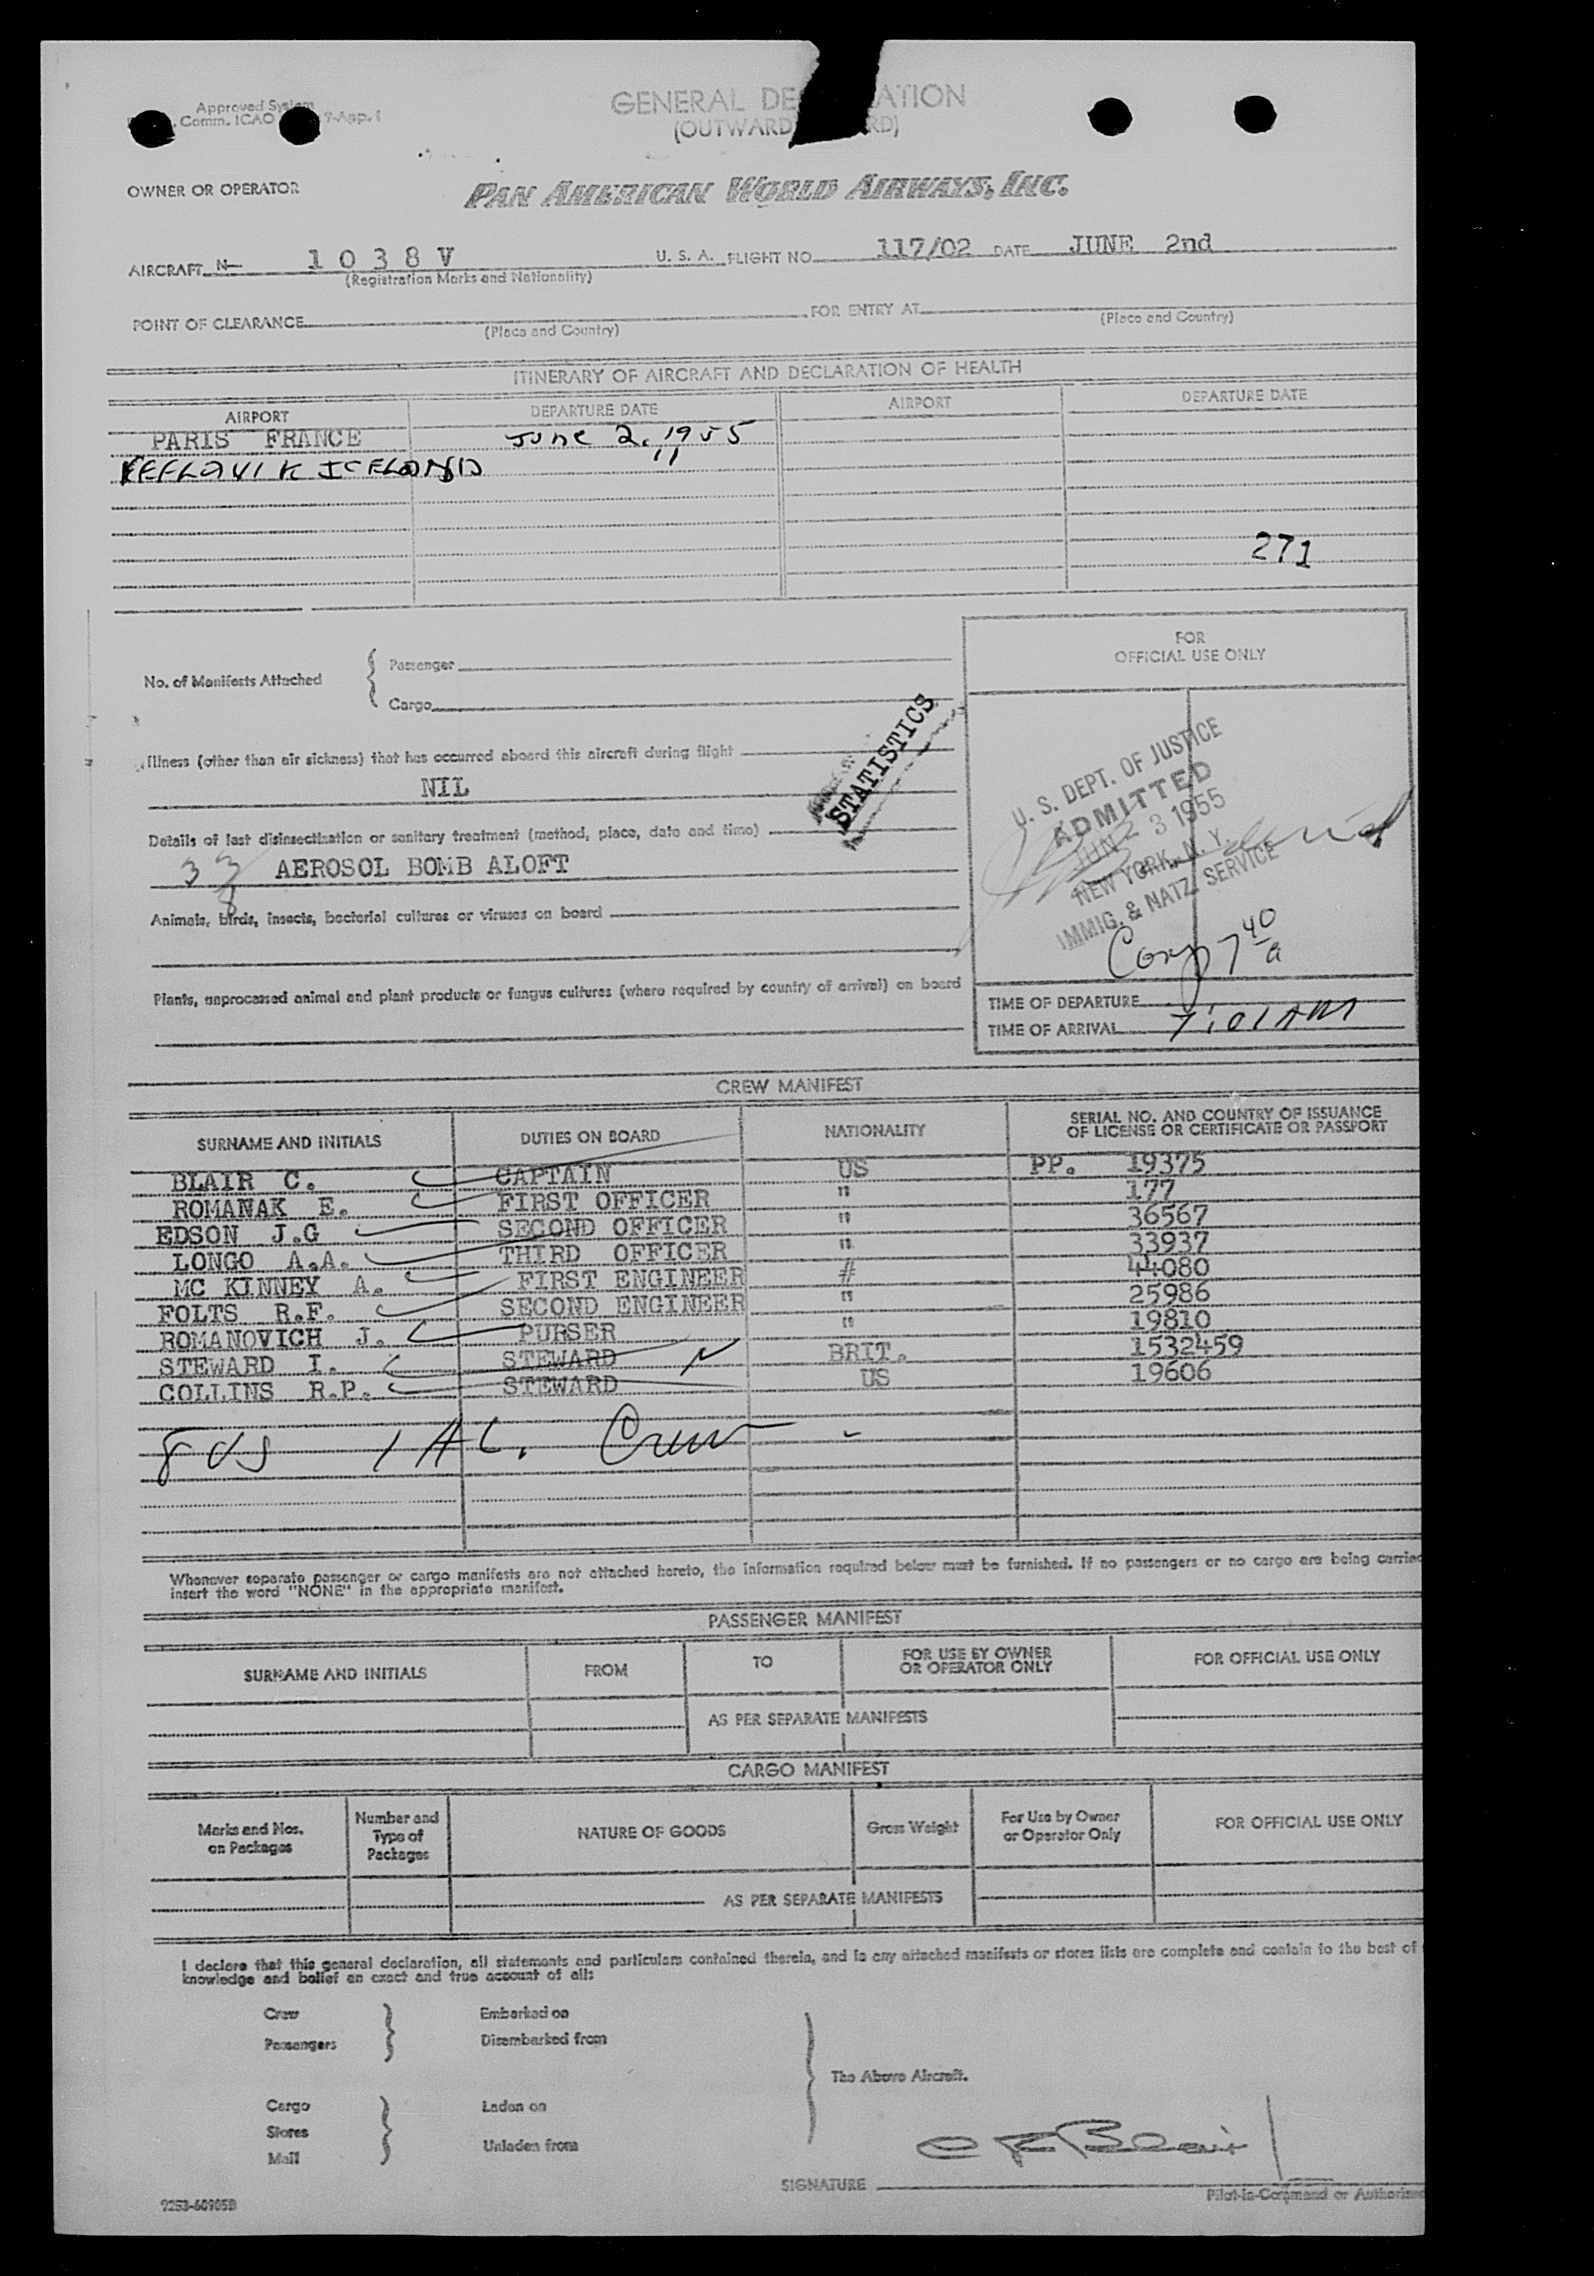 Approved System
Comm. ICAO 9-App. 1
GENERAL DE ATION
(OUTWARD RD)
OWNER OR OPERATOR
PAN AMERICAN WORLD AIRWAYS, INC.
AIRCRAFT N 1038V U. S. A. FLIGHT NO. 117/02 DATE JUNE 2nd
(Registration Marks and Nationality)
POINT OF CLEARANCE FOR ENTRY AT
(Place and Country) (Place and Country)
ITINERARY OF AIRCRAFT AND DECLARATION OF HEALTH
AIRPORT DEPARTURE DATE AIRPORT DEPARTURE DATE
PARIS FRANCE June 2. 1955
KEFLAVIK ICELAND "
271
FOR
OFFICIAL USE ONLY
No. of Manifests Attached { Passenger
Cargo
STATISTICS
Illness (other than air sickness) that has occurred aboard this aircraft during flight
NIL
Details of last disinsectisation or sanitary treatment (method, place, date and time)
33 AEROSOL BOMB ALOFT
8
Animals, birds, insects, bacterial cultures or viruses on board
Plants, unprocessed animal and plant products or fungus cultures (where required by country of arrival) on board
U. S. DEPT. OF JUSTICE
ADMITTED
JUN 23 1955
NEW YORK, N. Y.
IMMIG. & NATZ. SERVICE
7 40 a
TIME OF DEPARTURE
TIME OF ARRIVAL 7:01 AM
CREW MANIFEST
SURNAME AND INITIALS DUTIES ON BOARD NATIONALITY SERIAL NO. AND COUNTRY OF ISSUANCE
OF LICENSE OR CERTIFICATE OR PASSPORT
BLAIR C. CAPTAIN US PP. 19375
ROMANAK E. FIRST OFFICER " 177
EDSON J.G SECOND OFFICER " 36567
LONGO A.A. THIRD OFFICER " 33937
MC KINNEY A. FIRST ENGINEER # 44080
FOLTS R.F. SECOND ENGINEER " 25986
ROMANOVICH J. PURSER " 19810
STEWARD I. STEWARD BRIT. 1532459
COLLINS R.P. STEWARD US 19606
8 US 1 AL. Crew
Whenever separate passenger or cargo manifests are not attached hereto, the information required below must be furnished. If no passengers or no cargo are being carried
insert the word "NONE" in the appropriate manifest.
PASSENGER MANIFEST
SURNAME AND INITIALS FROM TO FOR USE BY OWNER
OR OPERATOR ONLY FOR OFFICIAL USE ONLY
AS PER SEPARATE MANIFESTS
CARGO MANIFEST
Marks and Nos.
on Packages Number and
Type of
Packages NATURE OF GOODS Gross Weight For Use by Owner
or Operator Only FOR OFFICIAL USE ONLY
AS PER SEPARATE MANIFESTS
I declare that this general declaration, all statements and particulars contained therein, and in any attached manifests or stores lists are complete and contain to the best of
knowledge and belief an exact and true account of all:
Crew Embarked on
Passengers Disembarked from
The Above Aircraft.
Cargo Laden on
Stores
Mail Unladen from
C F Blair
SIGNATURE
Pilot-in-Command or Authorized
2253-60905B